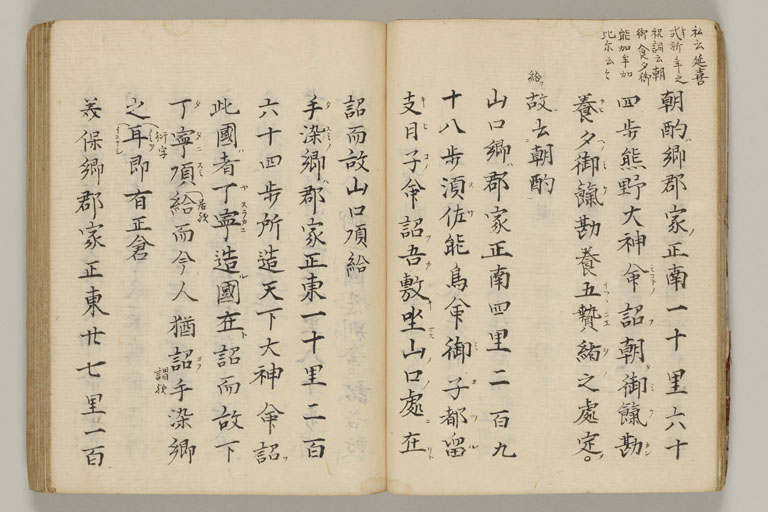 私云延喜
式祈年之
祝詞云朝
御食夕御
能加牟加
比尓云々
朝酌郷郡家正南一十里六十
四歩熊野大神命詔朝御餼勘
養夕御餼勘養五贄緒之處定。
給故云朝酌
山口郷郡家正南四里二百九
十八歩須佐能烏命御子都留
支日子命詔吾敷坐山口處在
詔而故山口項給
手染郷郡家正東一十里二百
六十四歩所造天下大神命詔
此國者丁寧造國在詔而故丁
丁寧項給而今人猶詔手染郷
之耳即有正倉
美保郷郡家正東廿七里一百